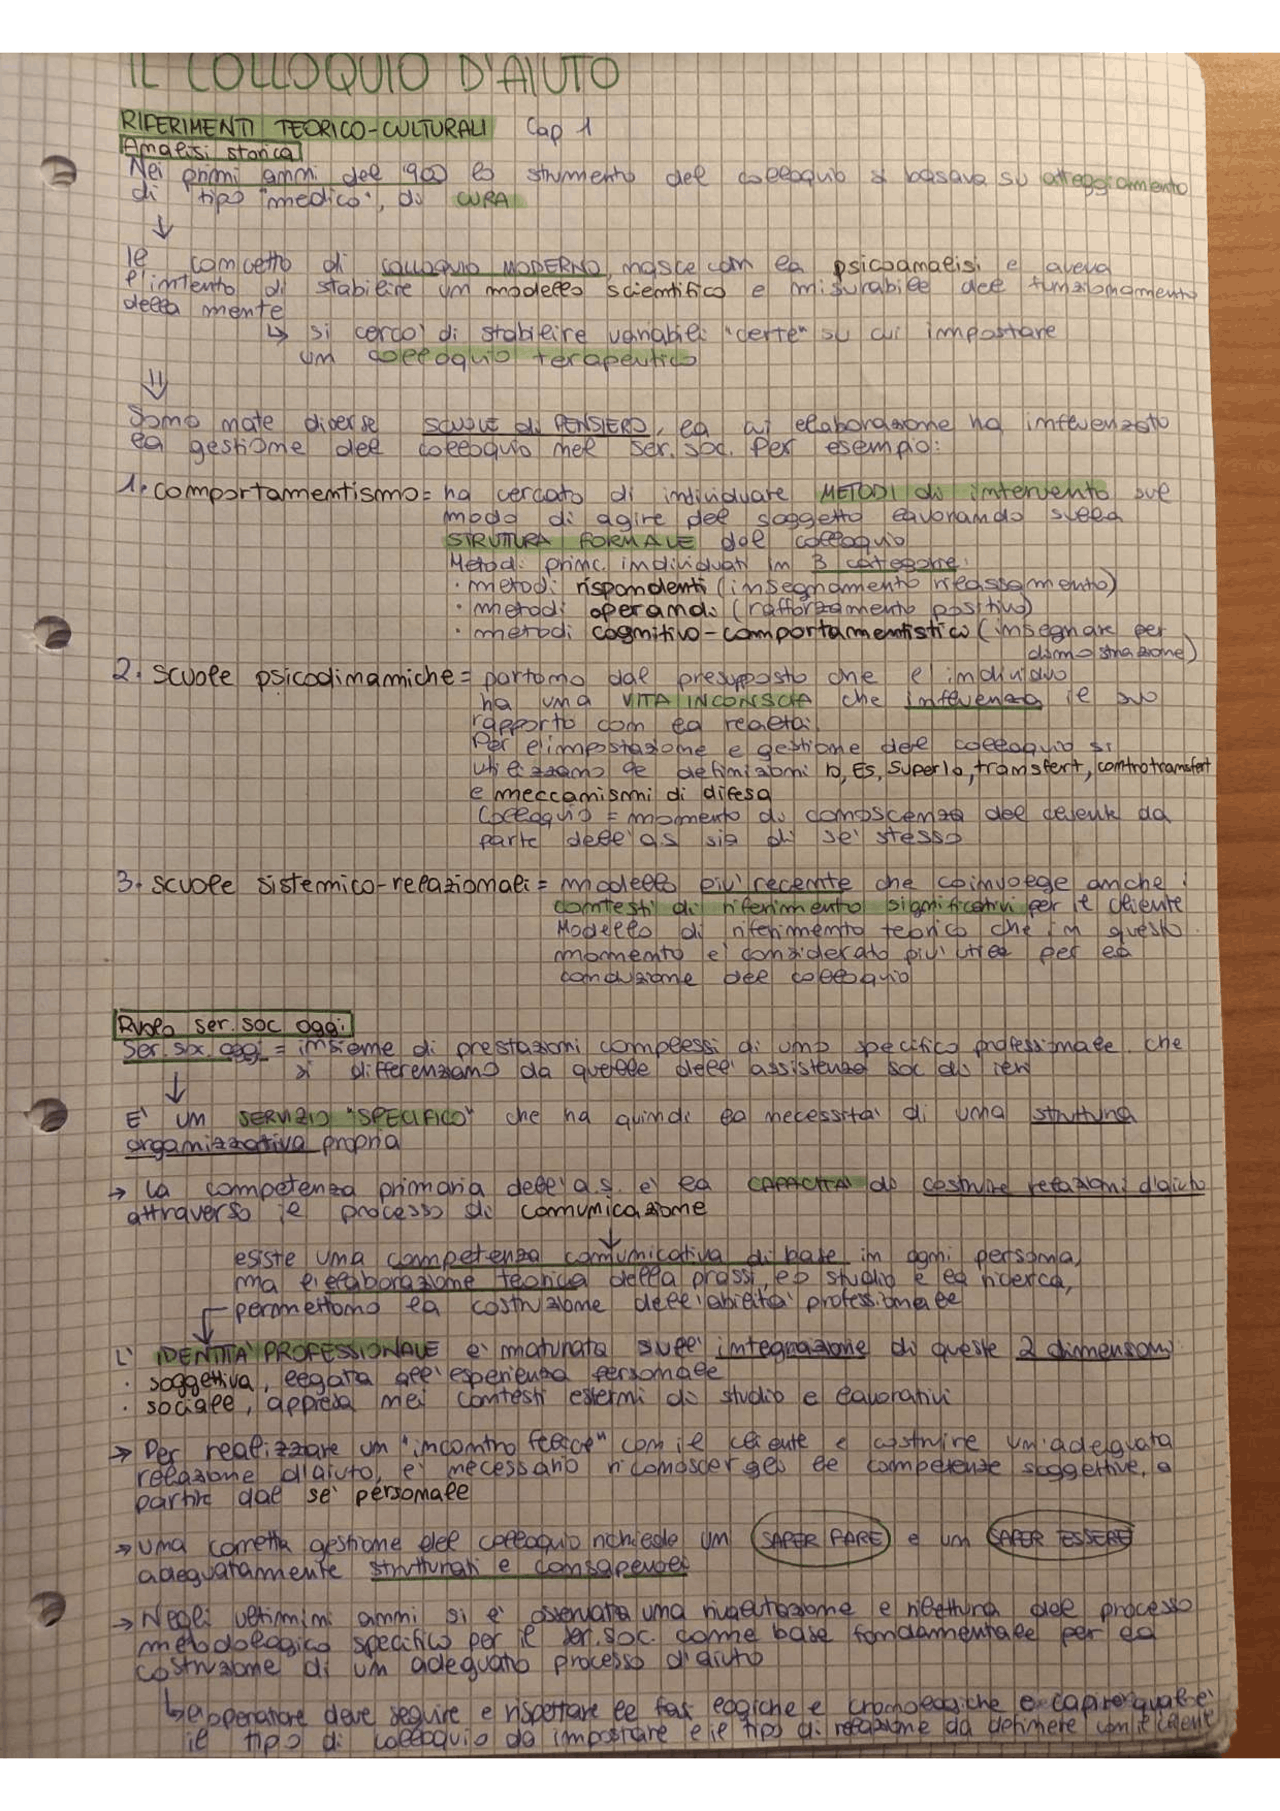 IL COLLOQUIO D'AIUTO
RIFERIMENTI TEORICO-CULTURALI Cap 1
Analisi storica
Nei primi anni del '900 lo strumento del colloquio si basava su atteggiamento
di tipo "medico", di CURA
↓
Il concetto di COLLOQUIO MODERNO nasce con la psicoanalisi e aveva
l'intento di stabilire un modello scientifico e misurabile del funzionamento
della mente
↳ si cercò di stabilire variabili "certe" su cui impostare
un colloquio terapeutico
⇓
Sono nate diverse SCUOLE di PENSIERO, la cui elaborazione ha influenzato
la gestione del colloquio nel ser. soc. Per esempio:
1. comportamentismo= ha cercato di individuare METODI di intervento sul
modo di agire del soggetto lavorando sulla
STRUTTURA FORMALE del colloquio
Metodi princ. individuati in 3 categorie:
· metodi rispondenti (insegnamento rilassamento)
· metodi operandi (rafforzamento positivo)
· metodi cognitivo-comportamentistico (insegnare per
dimostrazione)
2. scuole psicodinamiche= partono dal presupposto che l'individuo
ha una VITA INCONSCIA che influenza il suo
rapporto con la realtà.
Per l'impostazione e gestione del colloquio si
utilizzano le definizioni Io, Es, SuperIo, transfert, controtransfert
e meccanismi di difesa
Colloquio = momento di conoscenza del cliente da
parte dell'a.s sia di sé stesso
3. scuole sistemico-relazionali= modello più recente che coinvolge anche i
contesti di riferimento significativi per il cliente
Modello di riferimento teorico che in questo
momento è considerato più utile per la
conduzione del colloquio
Ruolo ser. soc oggi
Ser. soc. oggi = insieme di prestazioni complessi di uno specifico professionale che
si differenziano da quelle dell'assistenza soc di ieri
↓
E' un SERVIZIO "SPECIFICO" che ha quindi la necessità di una struttura
organizzativa propria
→ La competenza primaria dell'a.s. è la CAPACITÀ di costruire relazioni d'aiuto
attraverso il processo di comunicazione
↓
esiste una competenza comunicativa di base in ogni persona,
ma l'elaborazione teorica della prassi, lo studio e la ricerca,
permettono la costruzione dell'abilità professionale
L'IDENTITÀ PROFESSIONALE è maturata sull'integrazione di queste 2 dimensioni:
· soggettiva, legata all'esperienza personale
· sociale, appresa nei contesti esterni di studio e lavorativi
→ Per realizzare un "incontro felice" con il cliente e costruire un'adeguata
relazione d'aiuto, è necessario riconoscergli le competenze soggettive, a
partire dal sé personale
→ una corretta gestione del colloquio richiede un SAPER FARE e un SAPER ESSERE
adeguatamente strutturati e consapevoli
→ Negli ultimimi anni si è osservata una rivalutazione e rilettura del processo
metodologico specifico per il ser. soc. come base fondamentale per la
costruzione di un adeguato processo d'aiuto
↳ l'operatore deve seguire e rispettare le fasi logiche e cronologiche e capire qual è
il tipo di colloquio da impostare e il tipo di relazione da definere con il cliente